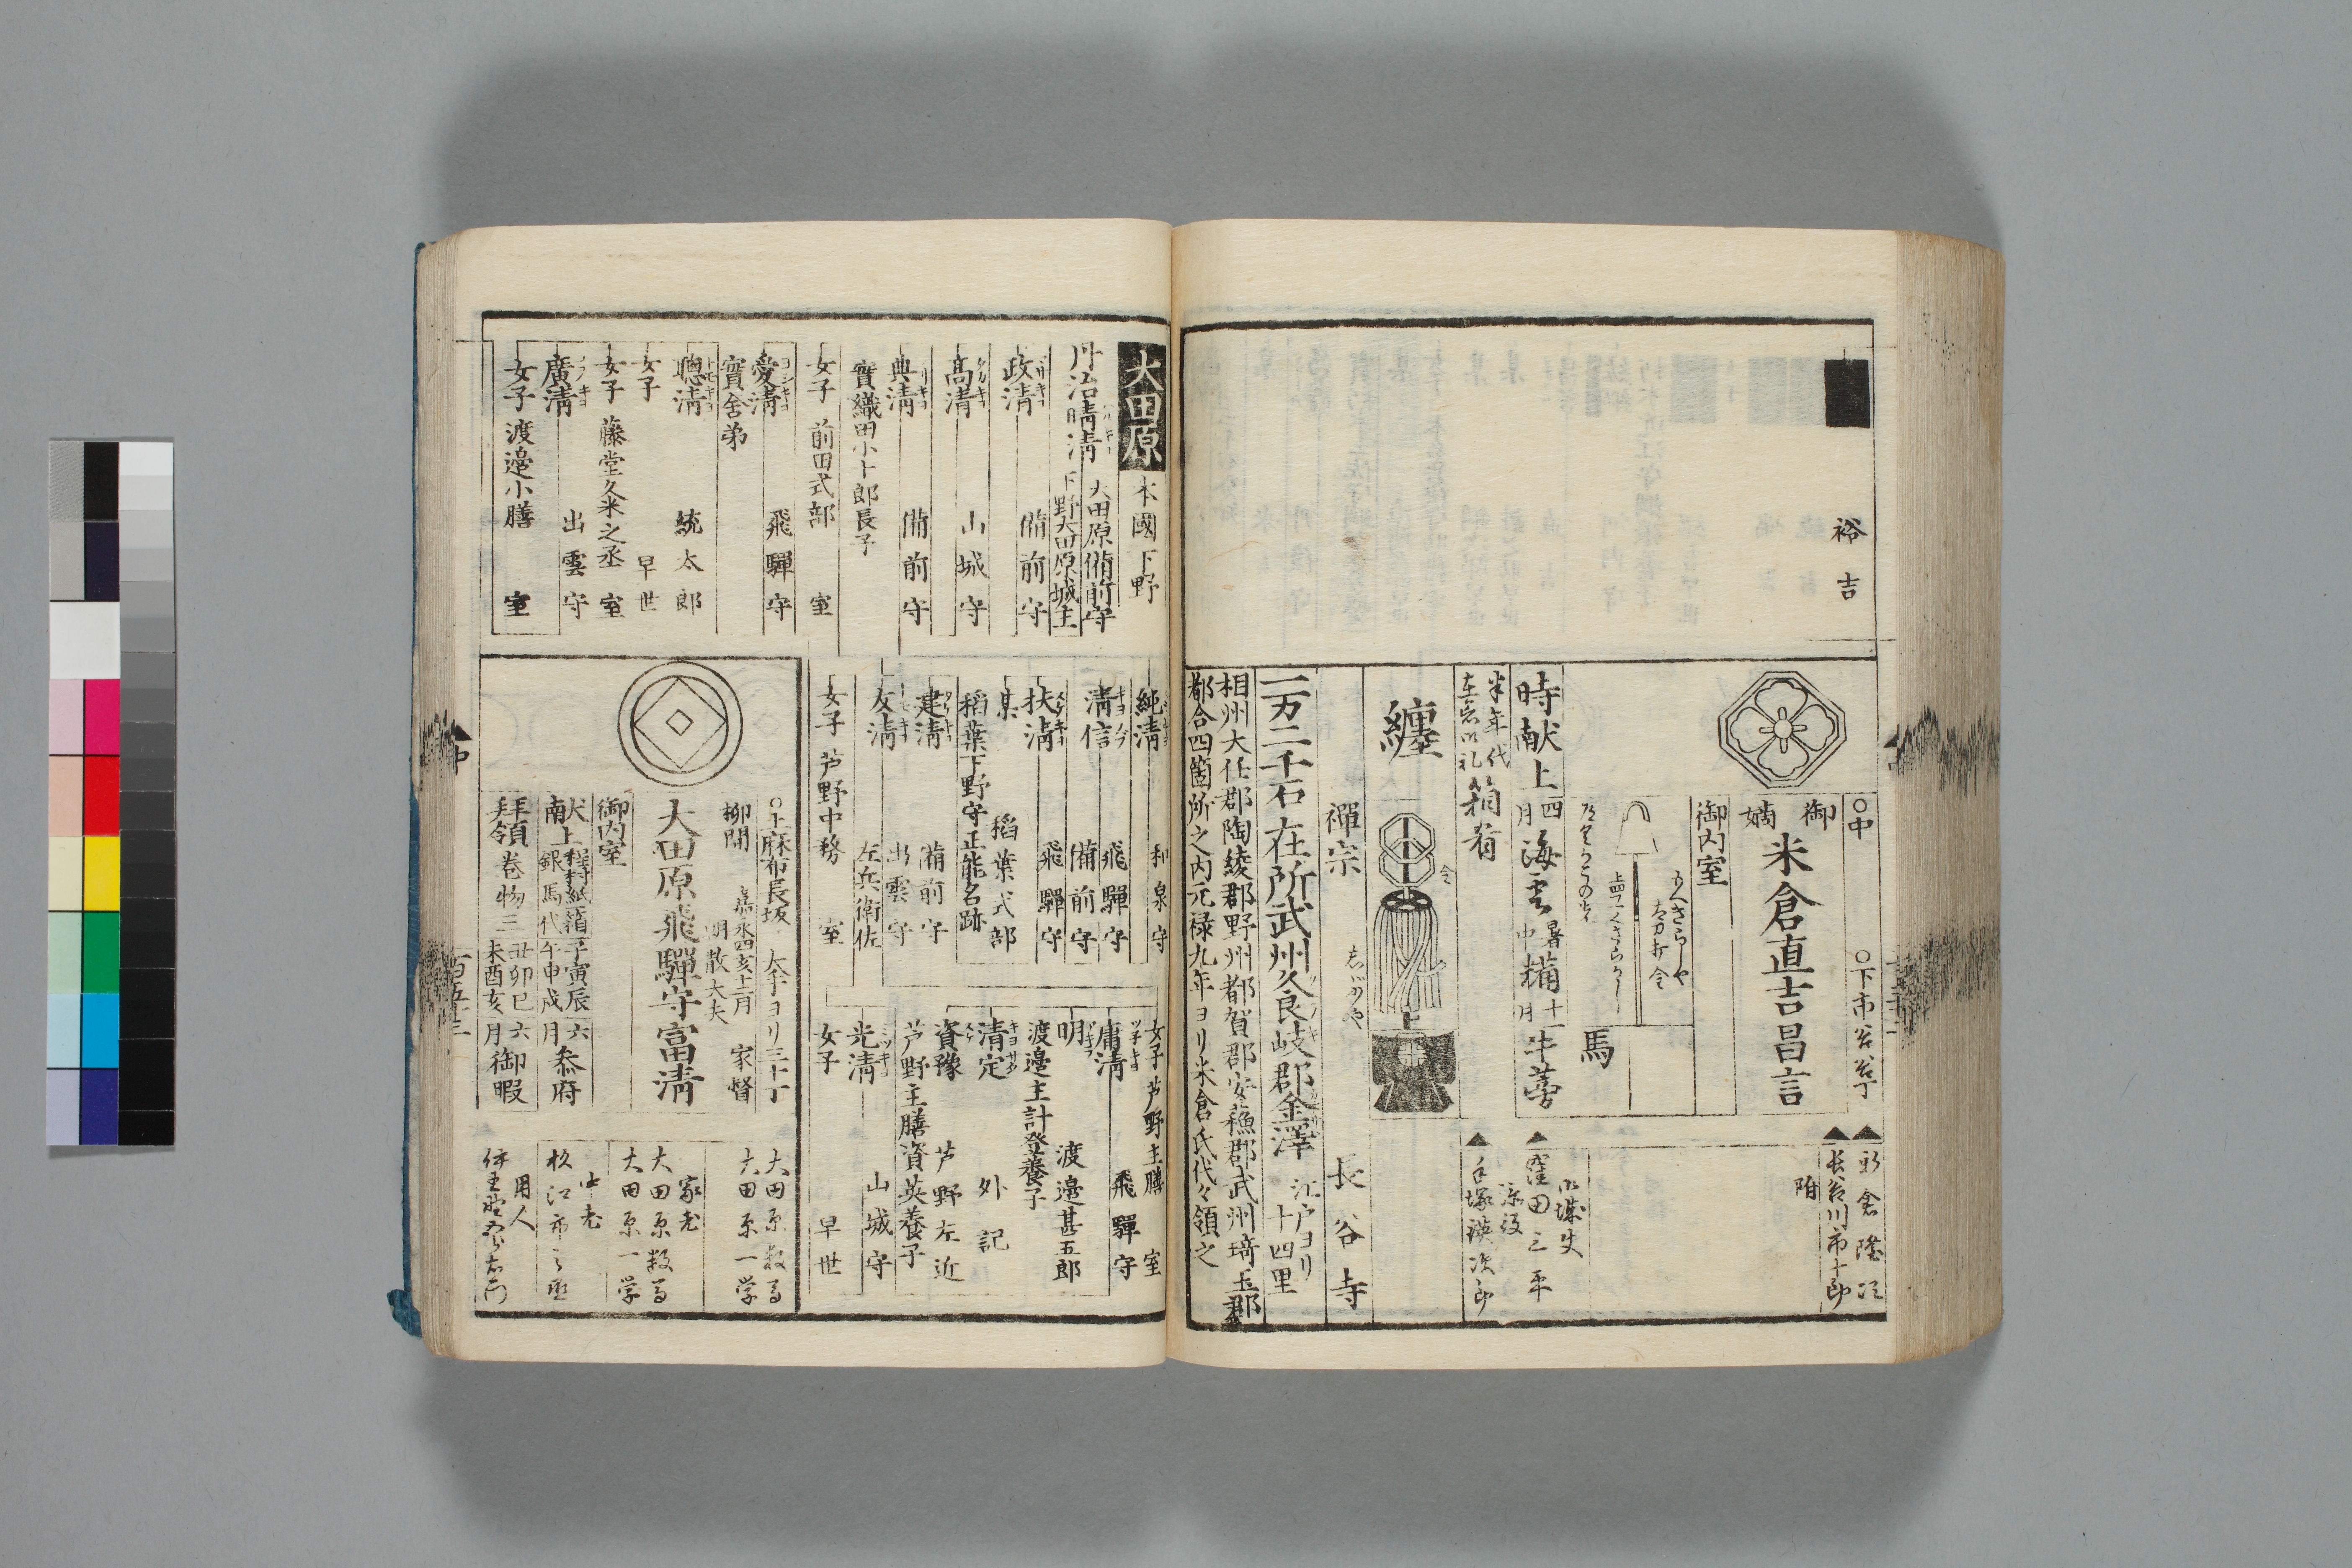 裕吉
〇中
〇下市谷谷丁
御嫡
米倉直吉昌言
御内室
馬
時献上
四月
海雲
暑中
糒
十一月
牛蒡
箱肴
纏
禪宗
長谷寺
一万二千石在所武州久良岐郡金澤
江戸ヨリ十四里
相州大住郡陶綾郡野州都賀郡安蘓郡武州埼玉郡
都合四箇所之内元禄九年ヨリ米倉氏代々領之
長谷川市十郎
附
窪田三平
手塚漢次郎
大田原
本國下野
丹治晴清
大田原備前守
下野大田原城主
政清
備前守
高清
山城守
典清
備前守
實織田小十郎長子
女子
前田式部
室
愛清
飛驒守
實舍弟
聰清
統太郎
女子
早世
女子
藤堂久米之丞
室
廣清
出雲守
女子
渡邉小膳
室
純清
和泉守
清信
飛驒守
備前守
扶清
飛驒守
某
稻葉式部
稻葉下野守正能名跡
建清
備前守
出雲守
友清
左兵衛佐
女子
芦野中務
室
女子
芦野主膳
室
庸清
飛驒守
明清
渡邉甚五郎
渡邉主計登養子
清定
外記
資豫
芦野左近
芦野主膳資英養子
光清
山城守
女子
早世
〇上麻布長坂
大手ヨリ三十丁
柳間
嘉永四亥十二月
朝散大夫
家督
大田原飛驒守富清
御内室
献上
程村紙一箱
銀馬代
子寅辰
午申戌
六月
参府
拜領
巻物三
丑卯巳
未酉亥
六月
御暇
大田原数馬
大田原一学
家老
大田原数馬
大田原一学
中老
用人
中
百五十三